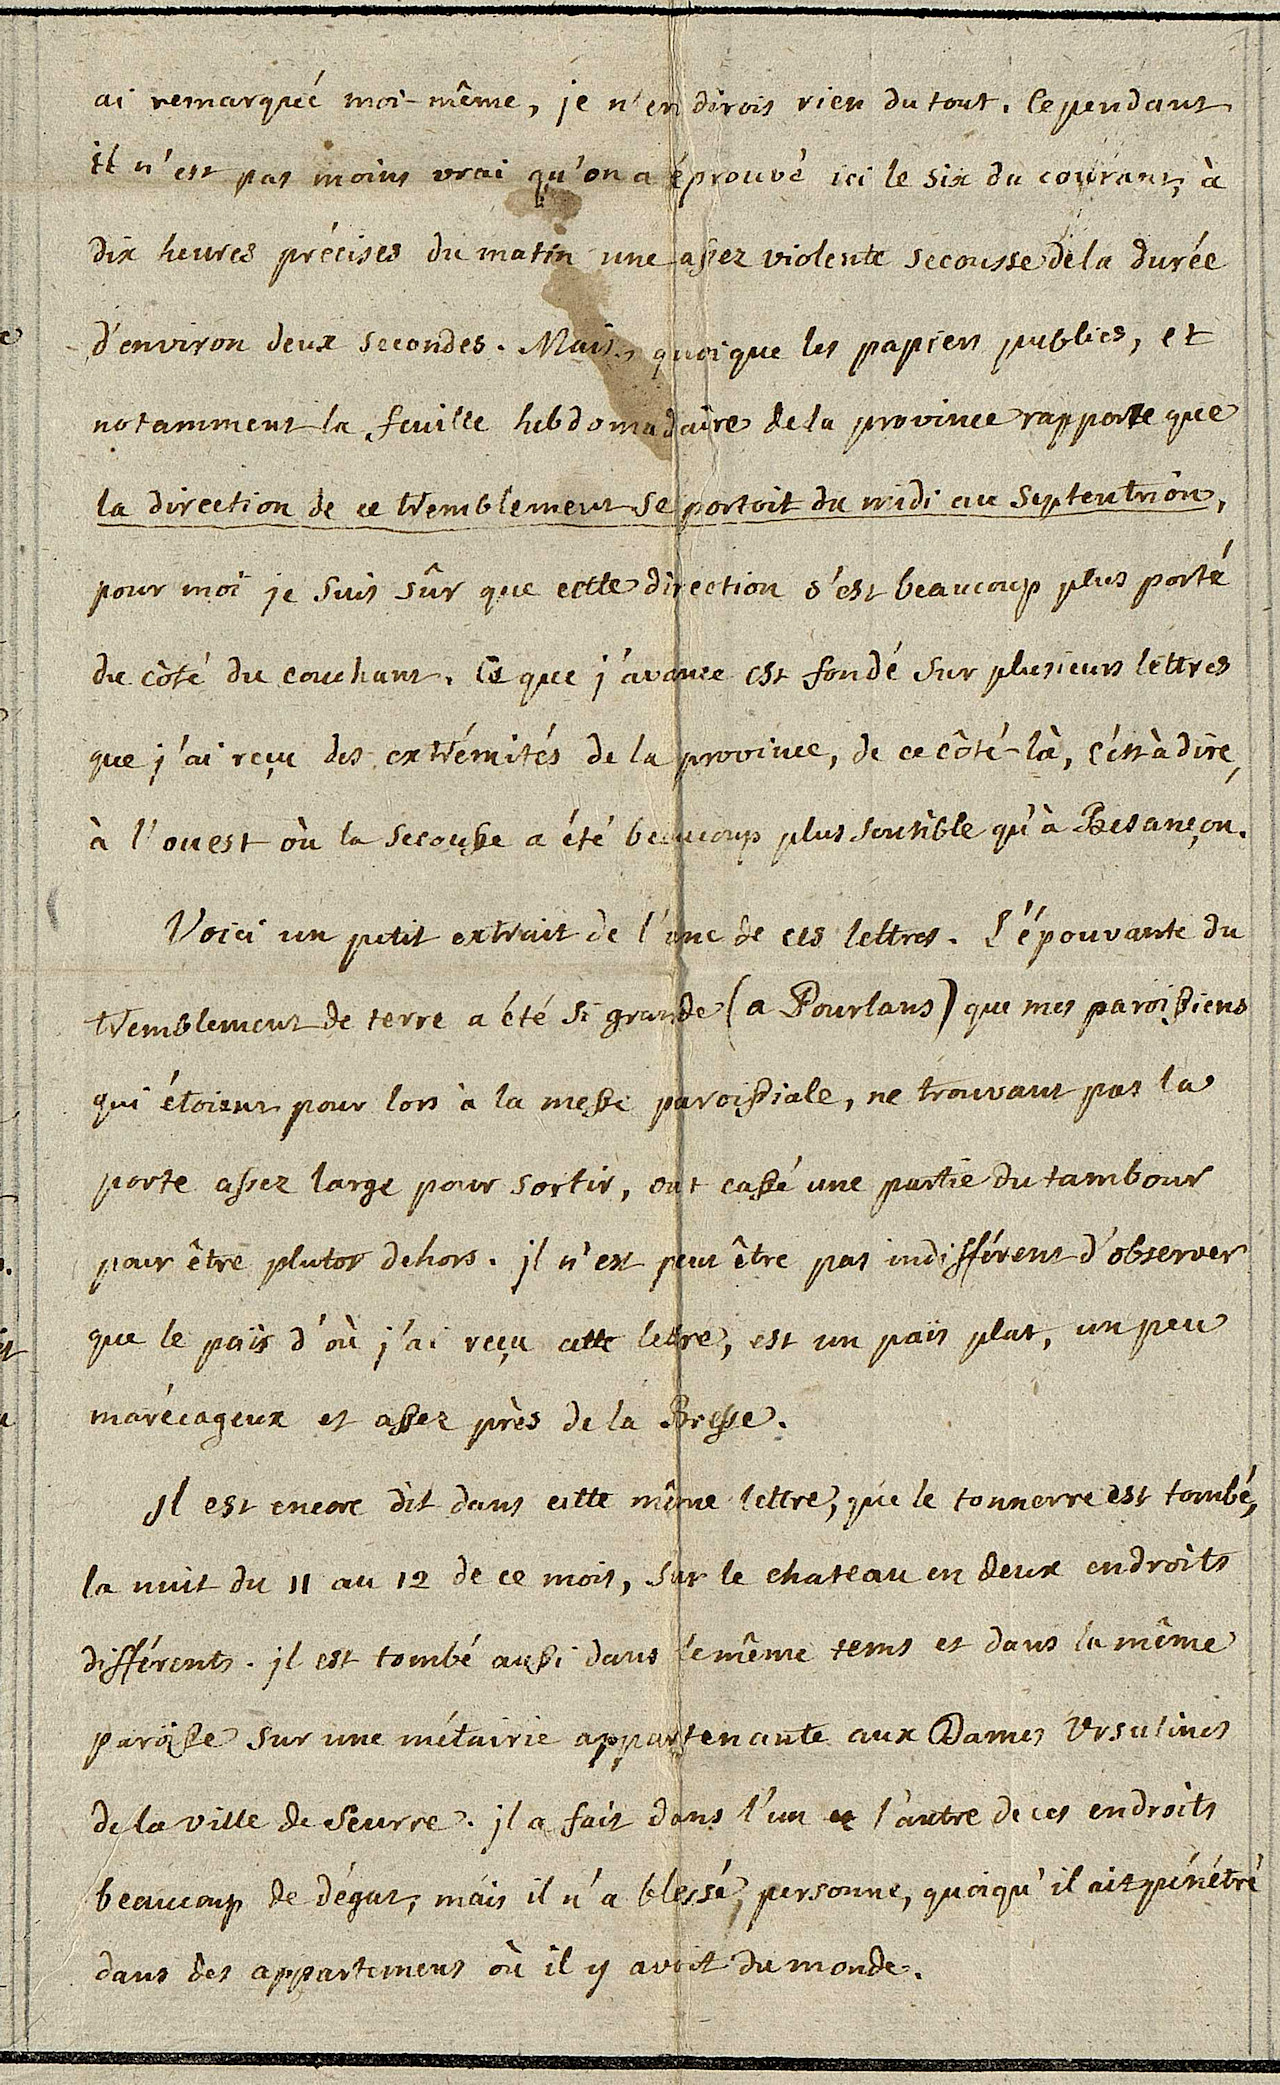 ai remarquée moi-même, je n'en dirois rien du tout. Cependant
il n'est pas moins vrai qu'on a éprouvé ici le six du courant, à
dix heures précises du matin une assez violente secousse de la durée
d'environ deux secondes. Mais, quoique les papiers publics, et
notamment la feuille hebdomadaire de la province rapporte que
la direction de ce tremblement se portoit du midi au septentrion,
pour moi je suis sûr que cette direction s'est beaucoup plus porté
du côté du couchant. Ce que j'avance est fondé sur plusieurs lettres
que j'ai reçu des extrémités de la province, de ce côté-là, c'est à dire,
à l'ouest où la secousse a été beaucoup plus sensible qu'à Besançon.
Voici un petit extrait de l'une de ces lettres. L'épouvante du
tremblement de terre a été si grande (a Pourlans) que mes paroissiens
qui étoient pour lors à la messe paroissiale, ne trouvant pas la
porte assez large pour sortir, ont cassé une partie du tambour
pour être plutot dehors. il n'est peut être pas indifférent d'observer
que le païs d'où j'ai reçu cette lettre, est un païs plat, un peu
marécageux et assez près de la Bresse.
Il est encore dit dans cette même lettre, que le tonnerre est tombé,
la nuit du 11 au 12 de ce mois, sur le chateau en deux endroits
différents. il est tombé aussi dans le même tems et dans la même
paroisse sur une métairie appartenante aux Dames Ursulines
de la ville de Seurre. il a fait dans l'un et l'autre de ces endroits
beaucoup de dégat, mais il n'a blessé personne, quoiqu'il ait pénétré
dans des appartemens où il y avoit du monde.